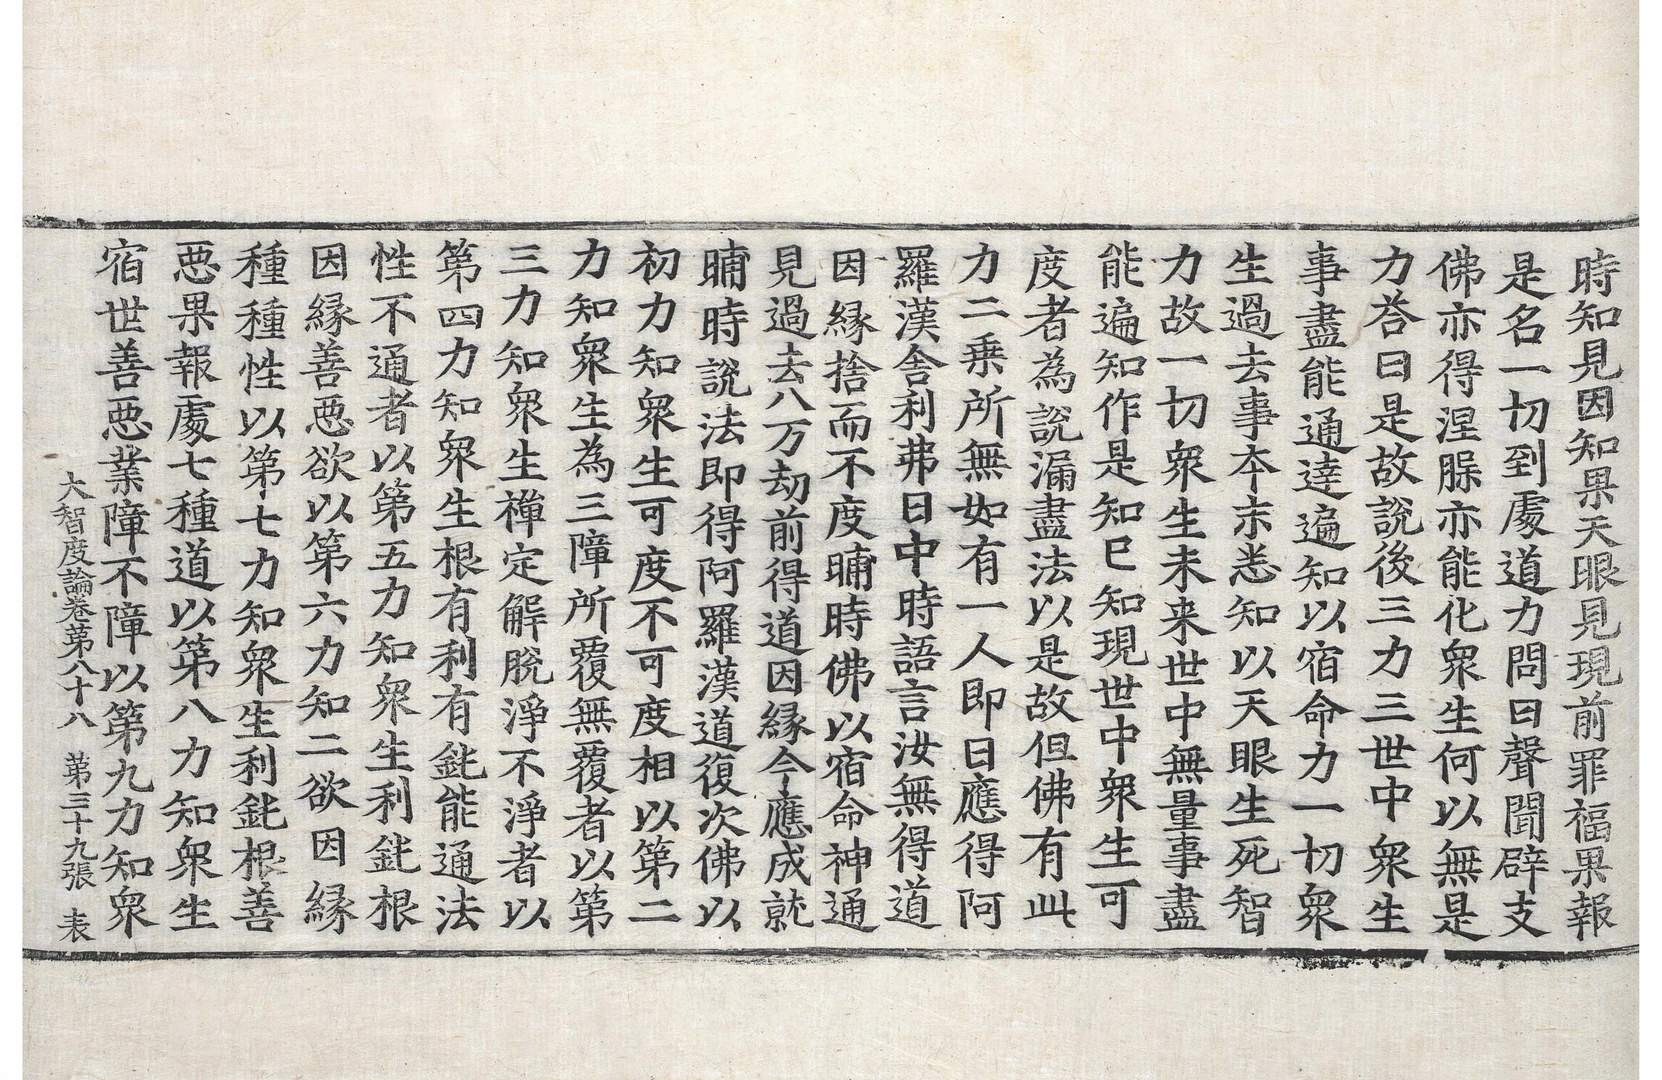 時知見因知果天眼見現前罪福果報
是名一切到處道力問曰聲聞辟支
佛亦得涅脲亦能化衆生何以無是
力荅曰是故說後三力三世中衆生
事盡能通達遍知以宿命力一切衆
生過去事夲末悉知以天眼生死智
力故一切衆生未来世中無量事盡
能遍知作是知已知現世中衆生可
度者為說漏盡法以是故但佛有此
力二乗所無如有一人即日應得阿
羅漢舍利弗日中時語言汝無得道
因縁捨而不度晡時佛以宿命神通
見過去八万劫前得道因縁今應成就
晡時說法即得阿羅漢道復次佛以
初力知衆生可度不可度相以第二
力知衆生為三障所覆無覆者以第
三力知衆生禪定解脫淨不淨者以
第四力知衆生根有利有鈍能通法
性不通者以第五力知衆生利鈍根
因縁善悪欲以第六力知二欲因縁
種種性以第七力知衆生利鈍根善
悪果報處七種道以第八力知衆生
宿世善悪業障不障以第九力知衆
大智度論卷第八十八 第三十九張 表